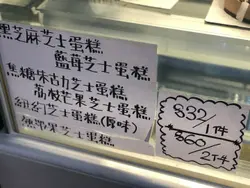 黑芝麻芝士蛋糕
藍莓芝士蛋糕
焦糖朱古力芝士蛋糕
荔枝芒果芝士蛋糕
紐約芝士蛋糕(原味)
無帶果芝士蛋糕
$32/1件
$60/2件